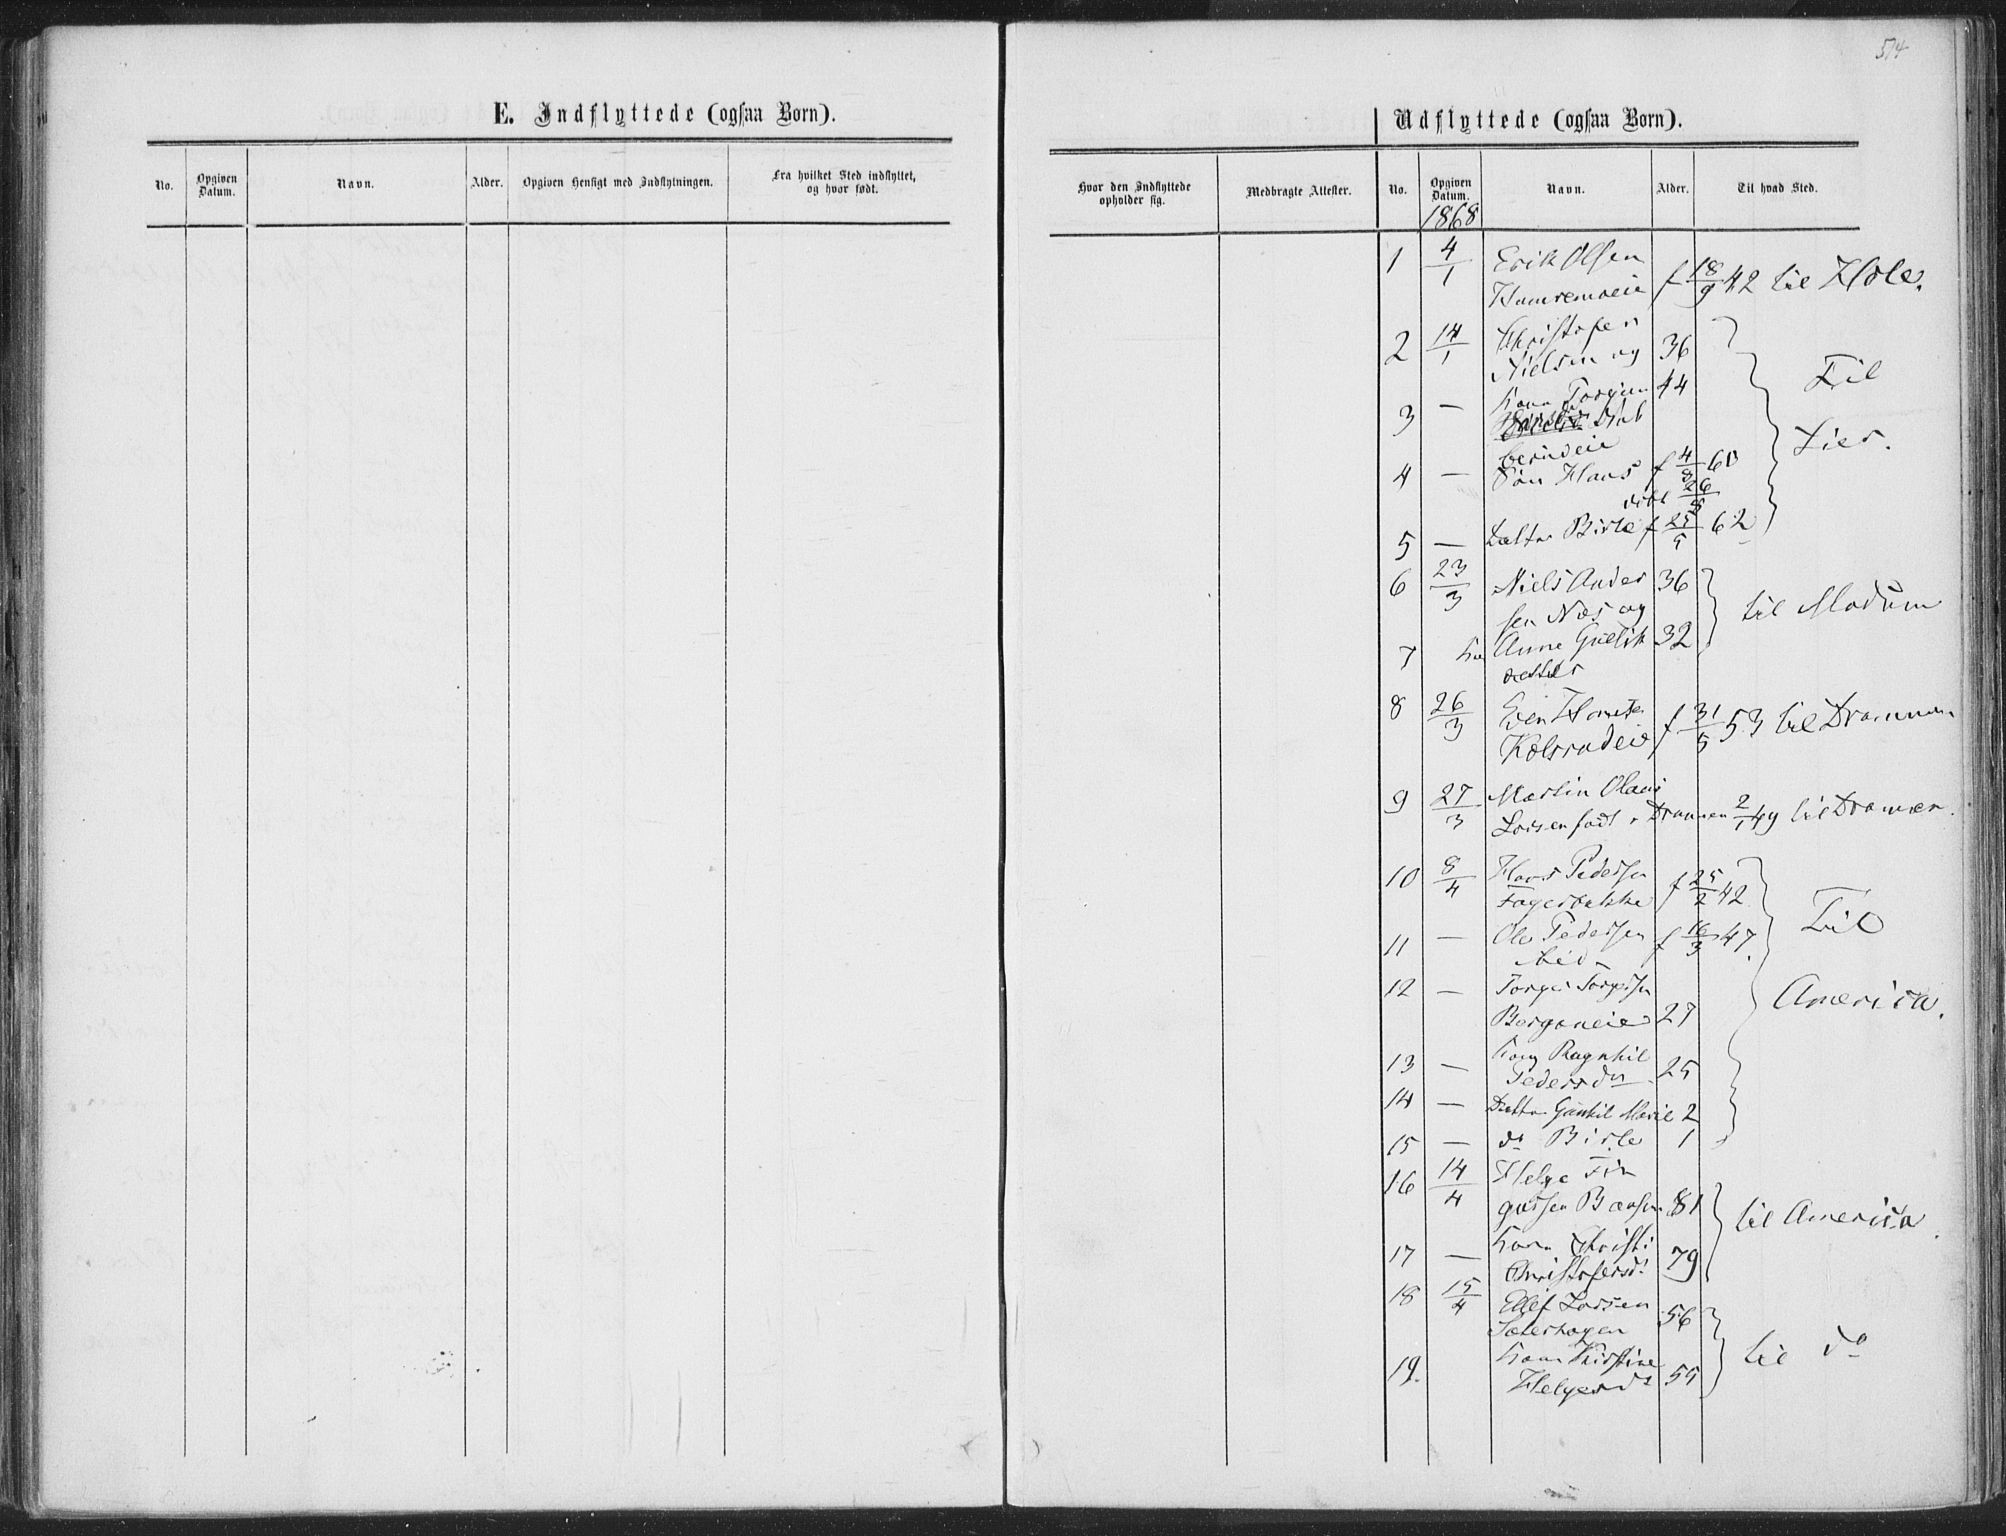 514
E. Indflyttede (ogsaa Børn).
No.
Opgiven Datum.
Navn.
Alder.
Opgiven Hensigt med Indflytningen.
Fra hvilket Sted indflyttet, og hvor født.
Udflyttede (ogsaa Børn).
Hvor den Indflyttede opholder sig.
Medbragte Attester.
No.
Opgiven Datum.
Navn.
Alder.
Til hvad Sted.
1868
1 4/1 Erik Olsen
f 18/9 42 til Hole.
2 14/1 Christofer
Nielsen og 36
3 — Kone Torgun 44
Til
Lier.
4 — Søn Hans f 4/3 60
døbt 26/8
5 — Datter Birte f 25/5 62
6 23/3 Niels Ander 36
sen Næs og
til Modum
7 Anne Gulbr 32
datter
8 26/3 Even
Kolsrudeie f 31/5 53 til Drammen
9 27/3 Martin Olaus
Larsen født i Drammen 2/1 49 til Drammen.
10 8/4 Hans Pedersen
Fagerbakke f 25/2 42
11 — Ole Pedersen f 16/3 47.
ibid
Til
America.
12 — Torger Torgersen
Berganeie 27
13 — Kone Ragnhil
Pedersdr 25
14 — Datter Gunhil Marie 2
15 — do Birte 1
16 14/4 Helge Fin
garsen 81
til America.
17 — Kone Christi
Christofersd. 79
18 15/4 Ellef Larsen 56
Sæterhagen
til do
19. Kone Kirstine
Helgesdr 55